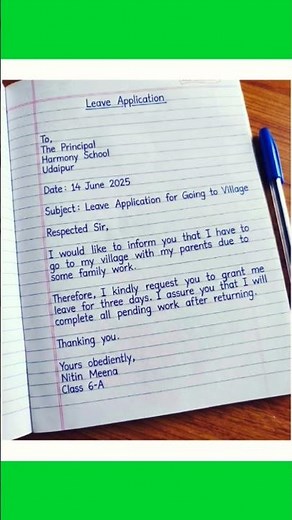 Leave Application
To,
The Principal
Harmony School
Udaipur
Date: 14 June 2025
Subject: Leave Application for Going to Village
Respected Sir,
I would like to inform you that I have to
go to my village with my parents due to
some family work.
Therefore, I kindly request you to grant me
leave for three days. I assure you that I will
complete all pending work after returning.
Thanking you.
Yours obediently,
Nitin Meena
Class 6-A